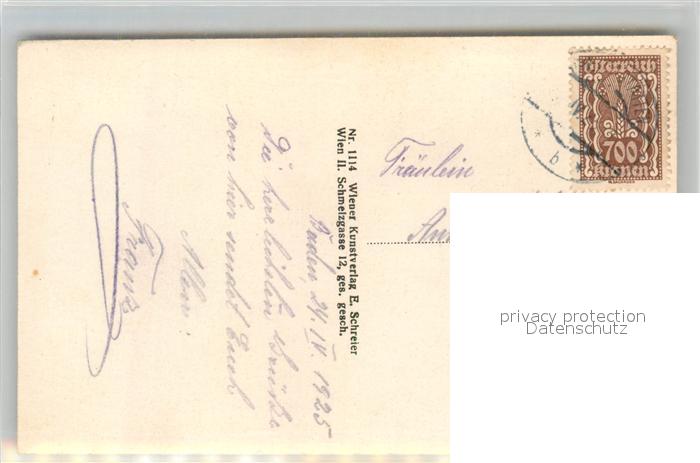 Baden, 24. IV. 1925
Die herzlichsten Grüße
von hier sendet Euch
Allen:
Franz
Nr. 1114 Wiener Kunstverlag E. Schreier
Wien II. Schmelzgasse 12, ges. gesch.
Fräulein
österreich
700
Kronen
b
privacy protection
Datenschutz